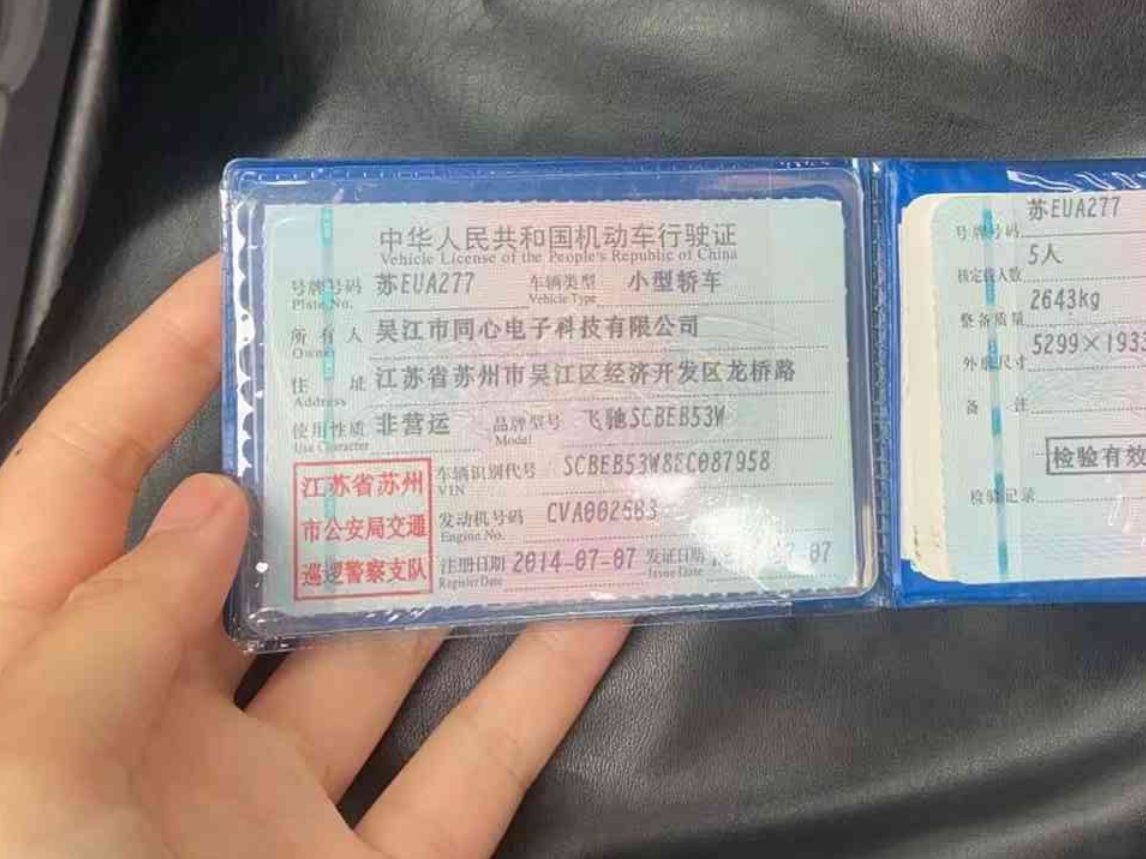 中华人民共和国机动车行驶证
Vehicle License of the People's Republic of China
号牌号码 苏EUA277 车辆类型 小型轿车
Plate No. Vehicle Type
所有人 吴江市同心电子科技有限公司
Owner
住址 江苏省苏州市吴江区经济开发区龙桥路
Address
使用性质 非营运 品牌型号 飞驰SCBEB53W
Use Character Model
车辆识别代号 SCBEB53W8EC087958
VIN
发动机号码
Engine No.
注册日期 2014-07-07 发证日期 07
Register Date Issue Date
江苏省苏州
市公安局交通
巡逻警察支队
号牌号码 苏EUA277
核定载人数 5人
整备质量 2643kg
外廓尺寸 5299×1933
备注
检验有效
检验记录